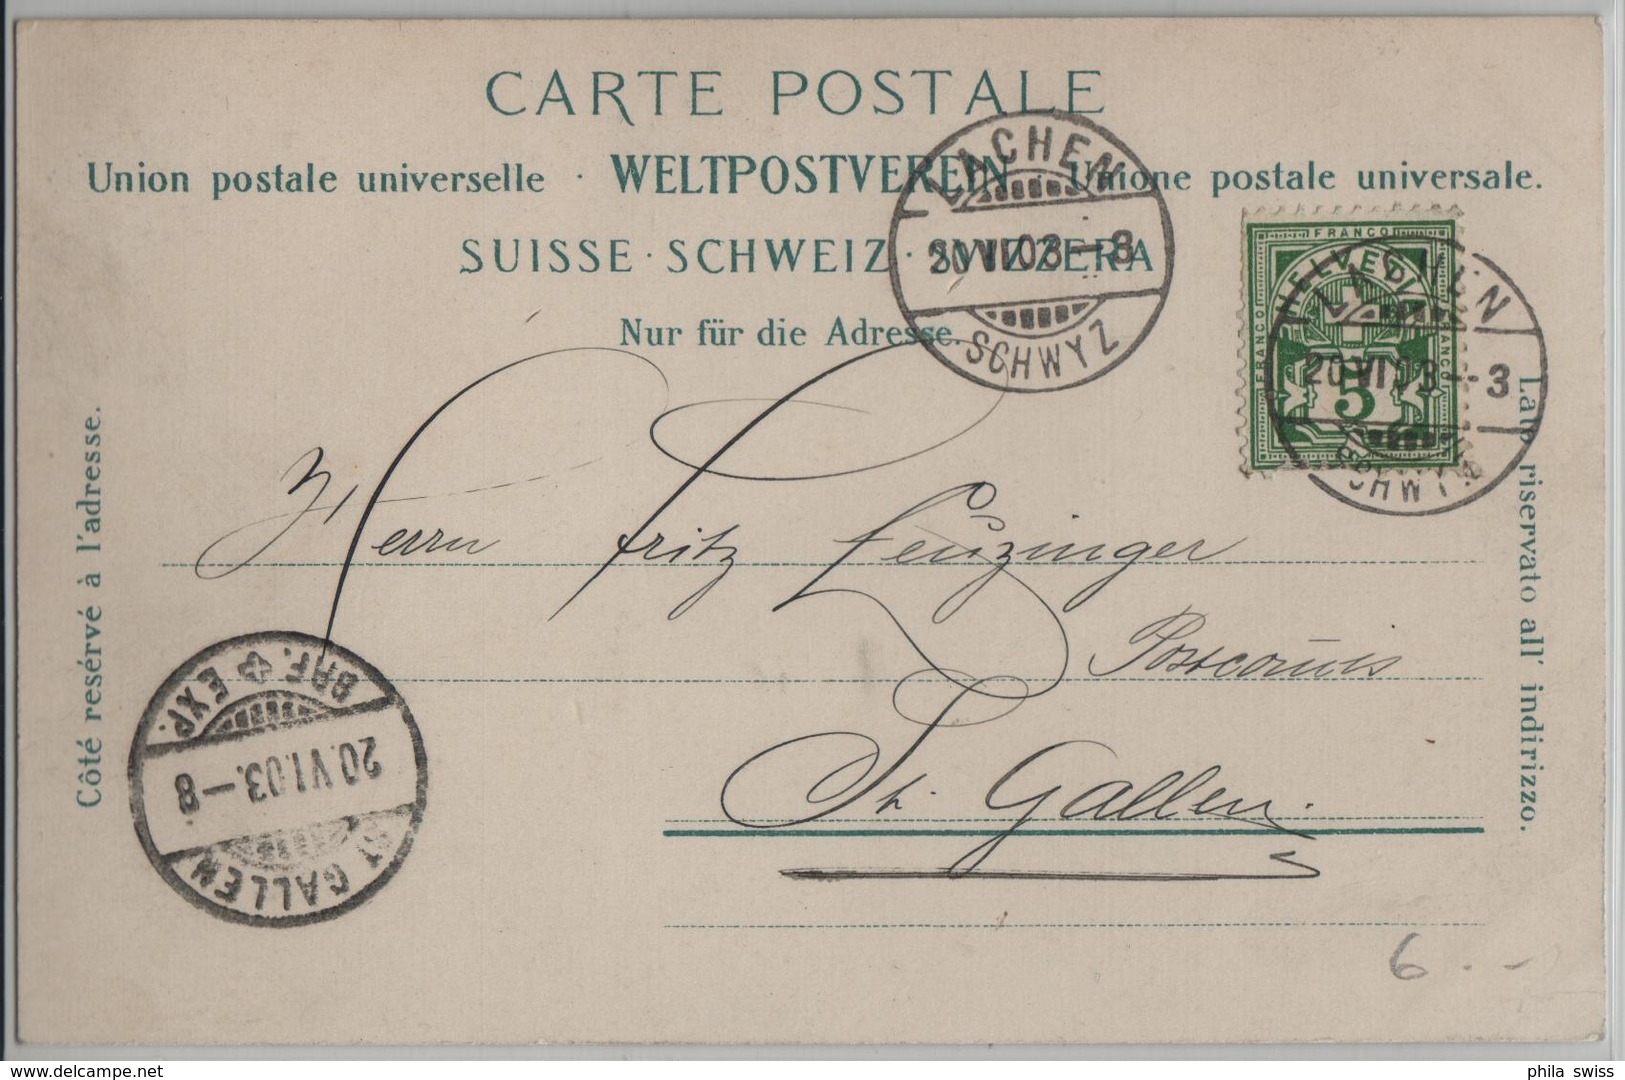 CARTE POSTALE
Union postale universelle · WELTPOSTVEREIN · Unione postale universale.
SUISSE · SCHWEIZ · SVIZZERA
Nur für die Adresse.
LACHEN
20 VI 03 – 8
SCHWYZ
FRANCO
HELVETIA
FRANCO
FRANCO
5
LACHEN
20 VI 03 – 3
SCHWYZ
Côté resérvé à l'adresse.
Lato riservato all' indirizzo.
Herrn Fritz Leuzinger
Postcomis
St. Gallen.
BRF. EXP.
20.VI.03.–8
ST GALLEN
6.-
Delcampe.net
phila swiss